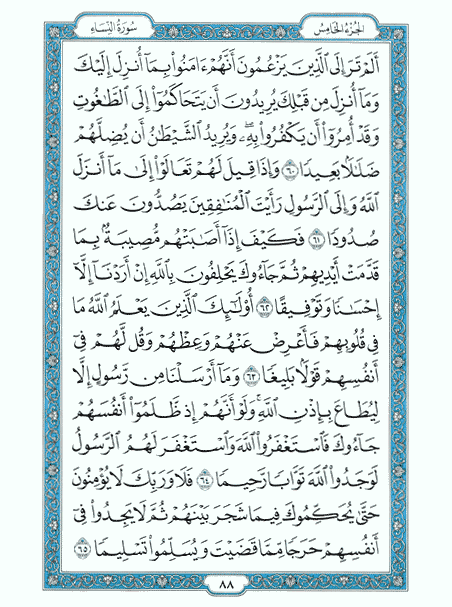 الجزء الخامس
سورة النساء
أَلَمْ تَرَ إِلَى ٱلَّذِينَ يَزْعُمُونَ أَنَّهُمْ ءَامَنُوا۟ بِمَآ أُنزِلَ إِلَيْكَ
وَمَآ أُنزِلَ مِن قَبْلِكَ يُرِيدُونَ أَن يَتَحَاكَمُوٓا۟ إِلَى ٱلطَّٰغُوتِ
وَقَدْ أُمِرُوٓا۟ أَن يَكْفُرُوا۟ بِهِۦۖ وَيُرِيدُ ٱلشَّيْطَٰنُ أَن يُضِلَّهُمْ
ضَلَٰلًۢا بَعِيدًا ٦٠ وَإِذَا قِيلَ لَهُمْ تَعَالَوْا۟ إِلَىٰ مَآ أَنزَلَ
ٱللَّهُ وَإِلَى ٱلرَّسُولِ رَأَيْتَ ٱلْمُنَٰفِقِينَ يَصُدُّونَ عَنكَ
صُدُودًا ٦١ فَكَيْفَ إِذَآ أَصَٰبَتْهُم مُّصِيبَةٌۢ بِمَا
قَدَّمَتْ أَيْدِيهِمْ ثُمَّ جَآءُوكَ يَحْلِفُونَ بِٱللَّهِ إِنْ أَرَدْنَآ إِلَّآ
إِحْسَٰنًا وَتَوْفِيقًا ٦٢ أُو۟لَٰٓئِكَ ٱلَّذِينَ يَعْلَمُ ٱللَّهُ مَا
فِى قُلُوبِهِمْ فَأَعْرِضْ عَنْهُمْ وَعِظْهُمْ وَقُل لَّهُمْ فِىٓ
أَنفُسِهِمْ قَوْلًۢا بَلِيغًا ٦٣ وَمَآ أَرْسَلْنَا مِن رَّسُولٍ إِلَّا
لِيُطَاعَ بِإِذْنِ ٱللَّهِۚ وَلَوْ أَنَّهُمْ إِذ ظَّلَمُوٓا۟ أَنفُسَهُمْ
جَآءُوكَ فَٱسْتَغْفَرُوا۟ ٱللَّهَ وَٱسْتَغْفَرَ لَهُمُ ٱلرَّسُولُ
لَوَجَدُوا۟ ٱللَّهَ تَوَّابًا رَّحِيمًا ٦٤ فَلَا وَرَبِّكَ لَا يُؤْمِنُونَ
حَتَّىٰ يُحَكِّمُوكَ فِيمَا شَجَرَ بَيْنَهُمْ ثُمَّ لَا يَجِدُوا۟ فِىٓ
أَنفُسِهِمْ حَرَجًا مِّمَّا قَضَيْتَ وَيُسَلِّمُوا۟ تَسْلِيمًا ٦٥
٨٨